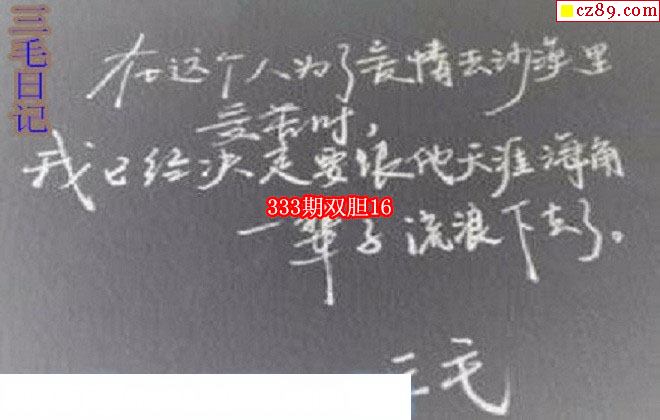 三毛日记
cz89.com
在这个人为了爱情去沙漠里
受苦时，
我已经决定要跟他天涯海角
333期双胆16
一辈子流浪下去了。
三毛